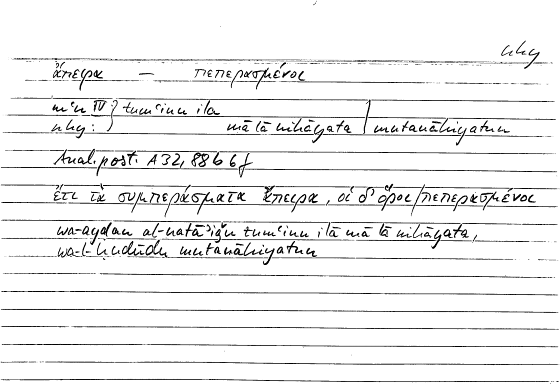 nhy
ἄπειρα — πεπερασμένοι
mʿn IV } tumʿinu ilā
nhy: mā lā nihāyata / mutanāhiyatun
Anal. post. A 32, 88 b 6 f
ἔτι τὰ συμπεράσματα ἄπειρα, οἱ δ' ὅροι / πεπερασμένοι
wa-ayḍan al-natāʾiǧu tumʿinu ilā mā lā nihāyata,
wa-l-ḥudūdu mutanāhiyatun